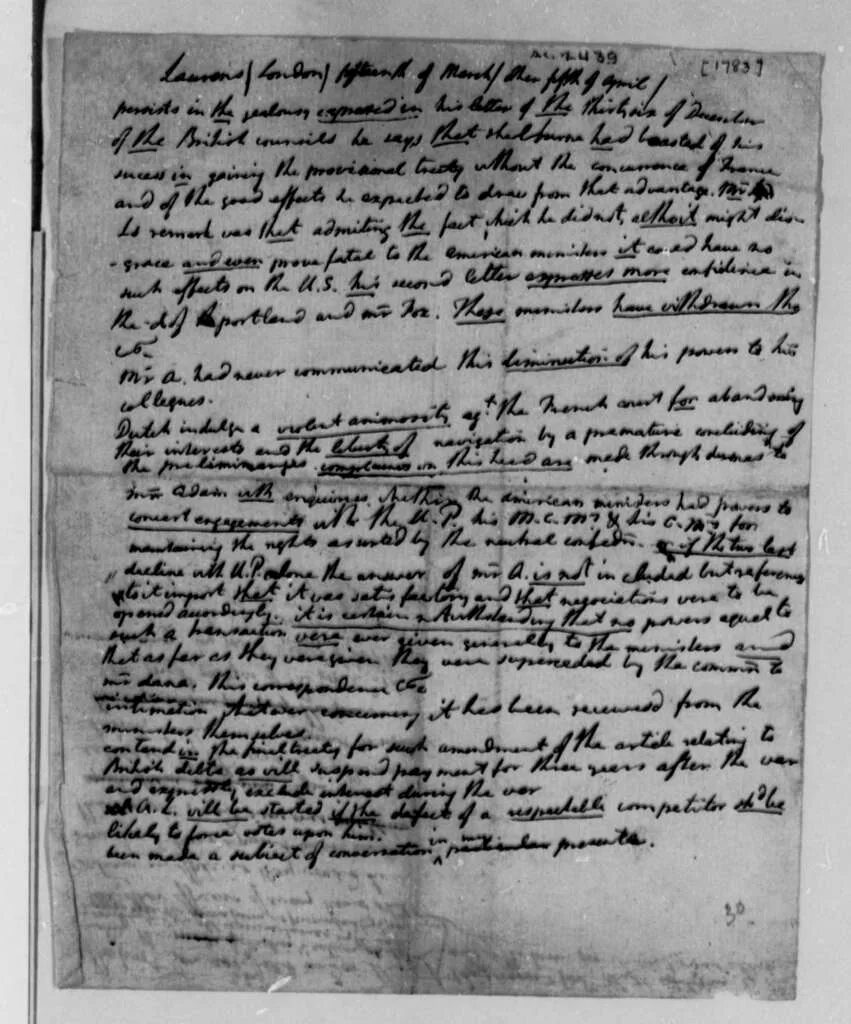 ac. 2439
[1783]
Laurens / London / fifteenth of March / other fifth of April /
persists in the jealousy expressed in his letter of the thirtsix of December
of the British councils he says that Shelburne had boasted of his
sucess in gaining the provisional treaty without the concurrence of France
and of the good effects he expected to draw from that advantage. Mr
Ls remark was that admiting the fact, which he did not, altho it might dis-
-grace and even prove fatal to the american ministers it co.ed have no
such effects on the U.S. his second letter expresses more confidence in
the d of portland and mr Fox. These ministers have withdrawn the
&c.
Mr A. had never communicated this diminution of his powers to his
collegues.
Dutch indulge a violent animosity agt. the French court for abandoning
their interests and the liberty of navigation by a premature concluding of
the preliminaryes complaints on this head are made through dumas to
mr Adam with enquiries whether the american ministers had powers to
concert engagements with the U.P. his M.C. My & his C. My for
maintaining the rights asserted by the neutral confedn. or if the two last
decline with U.P. alone the answer of mr A. is not included but references
to it import that it was satisfactory and that negociations were to be
opened accordingly. it is certain notwithstanding that no powers equal to
such a transaction were ever given generally to the ministers and
that as far as they were given they were superceded by the commn to
mr dana. this correspondence &c
intimation whatever concerning it has been received from the
ministers themselves.
contend in the final treaty for such amendment of the article relating to
British debts as will suspend payment for three years after the war
and expressly exclude interest during the war
A. L. will be started if the defect of a respectable competitor shd be
likely to force votes upon him.
been made a subject of conversation in my particular presents.
30